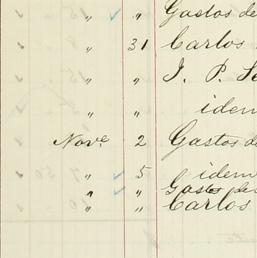 " " Gastos de
" 31 Carlos
" " J. P.
" " idem
Nove 2 Gastos de
" 5 idem
" " Gastos de
" " Carlos